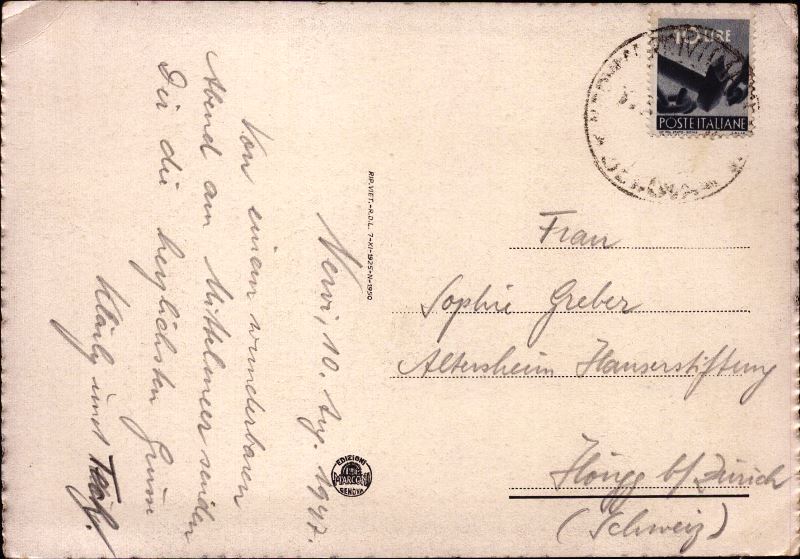 Nervi, 10. Aug. 1947.
Von einem wunderbaren
Abend am Mittelmeer senden
Dir die herzlichsten Grüsse
Klärly und
Frau
Sophie Greber
Altersheim Hauserstiftung
Höngg b/Zürich
(Schweiz)
10 LIRE
POSTE ITALIANE
RIP. VIET. - R.D.L. 7-XI-1925-N-1950
EDIZIONI
MARCONI
GENOVA